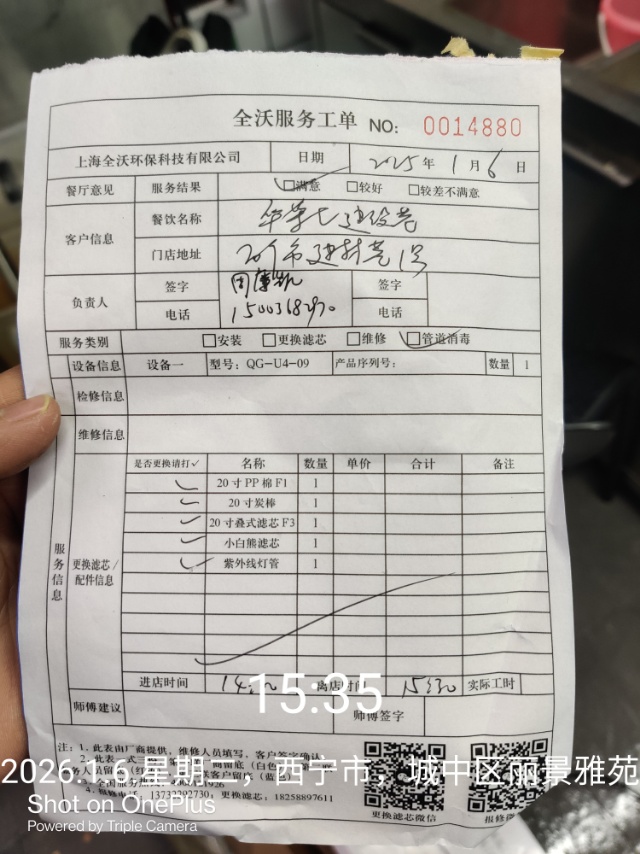 全沃服务工单 NO: 0014880
上海全沃环保科技有限公司 日期 2025年1月6日
餐厅意见 服务结果 ☑满意 □较好 □较差不满意
客户信息 餐饮名称
门店地址
负责人 签字 签字
电话 电话
服务类别 □安装 □更换滤芯 □维修 ☑管道消毒
设备信息 设备一 型号: QG-U4-09 产品序列号: 数量 1
检修信息
维修信息
服务信息
更换滤芯/配件信息
是否更换请打✓ 名称 数量 单价 合计 备注
✓ 20寸PP棉F1 1
✓ 20寸炭棒 1
✓ 20寸叠式滤芯F3 1
✓ 小白熊滤芯 1
✓ 紫外线灯管 1
进店时间 离店时间 实际工时
15:35
师傅建议 师傅签字
注: 1. 此表由厂商提供, 维修人员填写, 客户签字确认
2026.1.6 星期二, 西宁市, 城中区丽景雅苑
更换滤芯: 18258897611
更换滤芯微信
Shot on OnePlus
Powered by Triple Camera